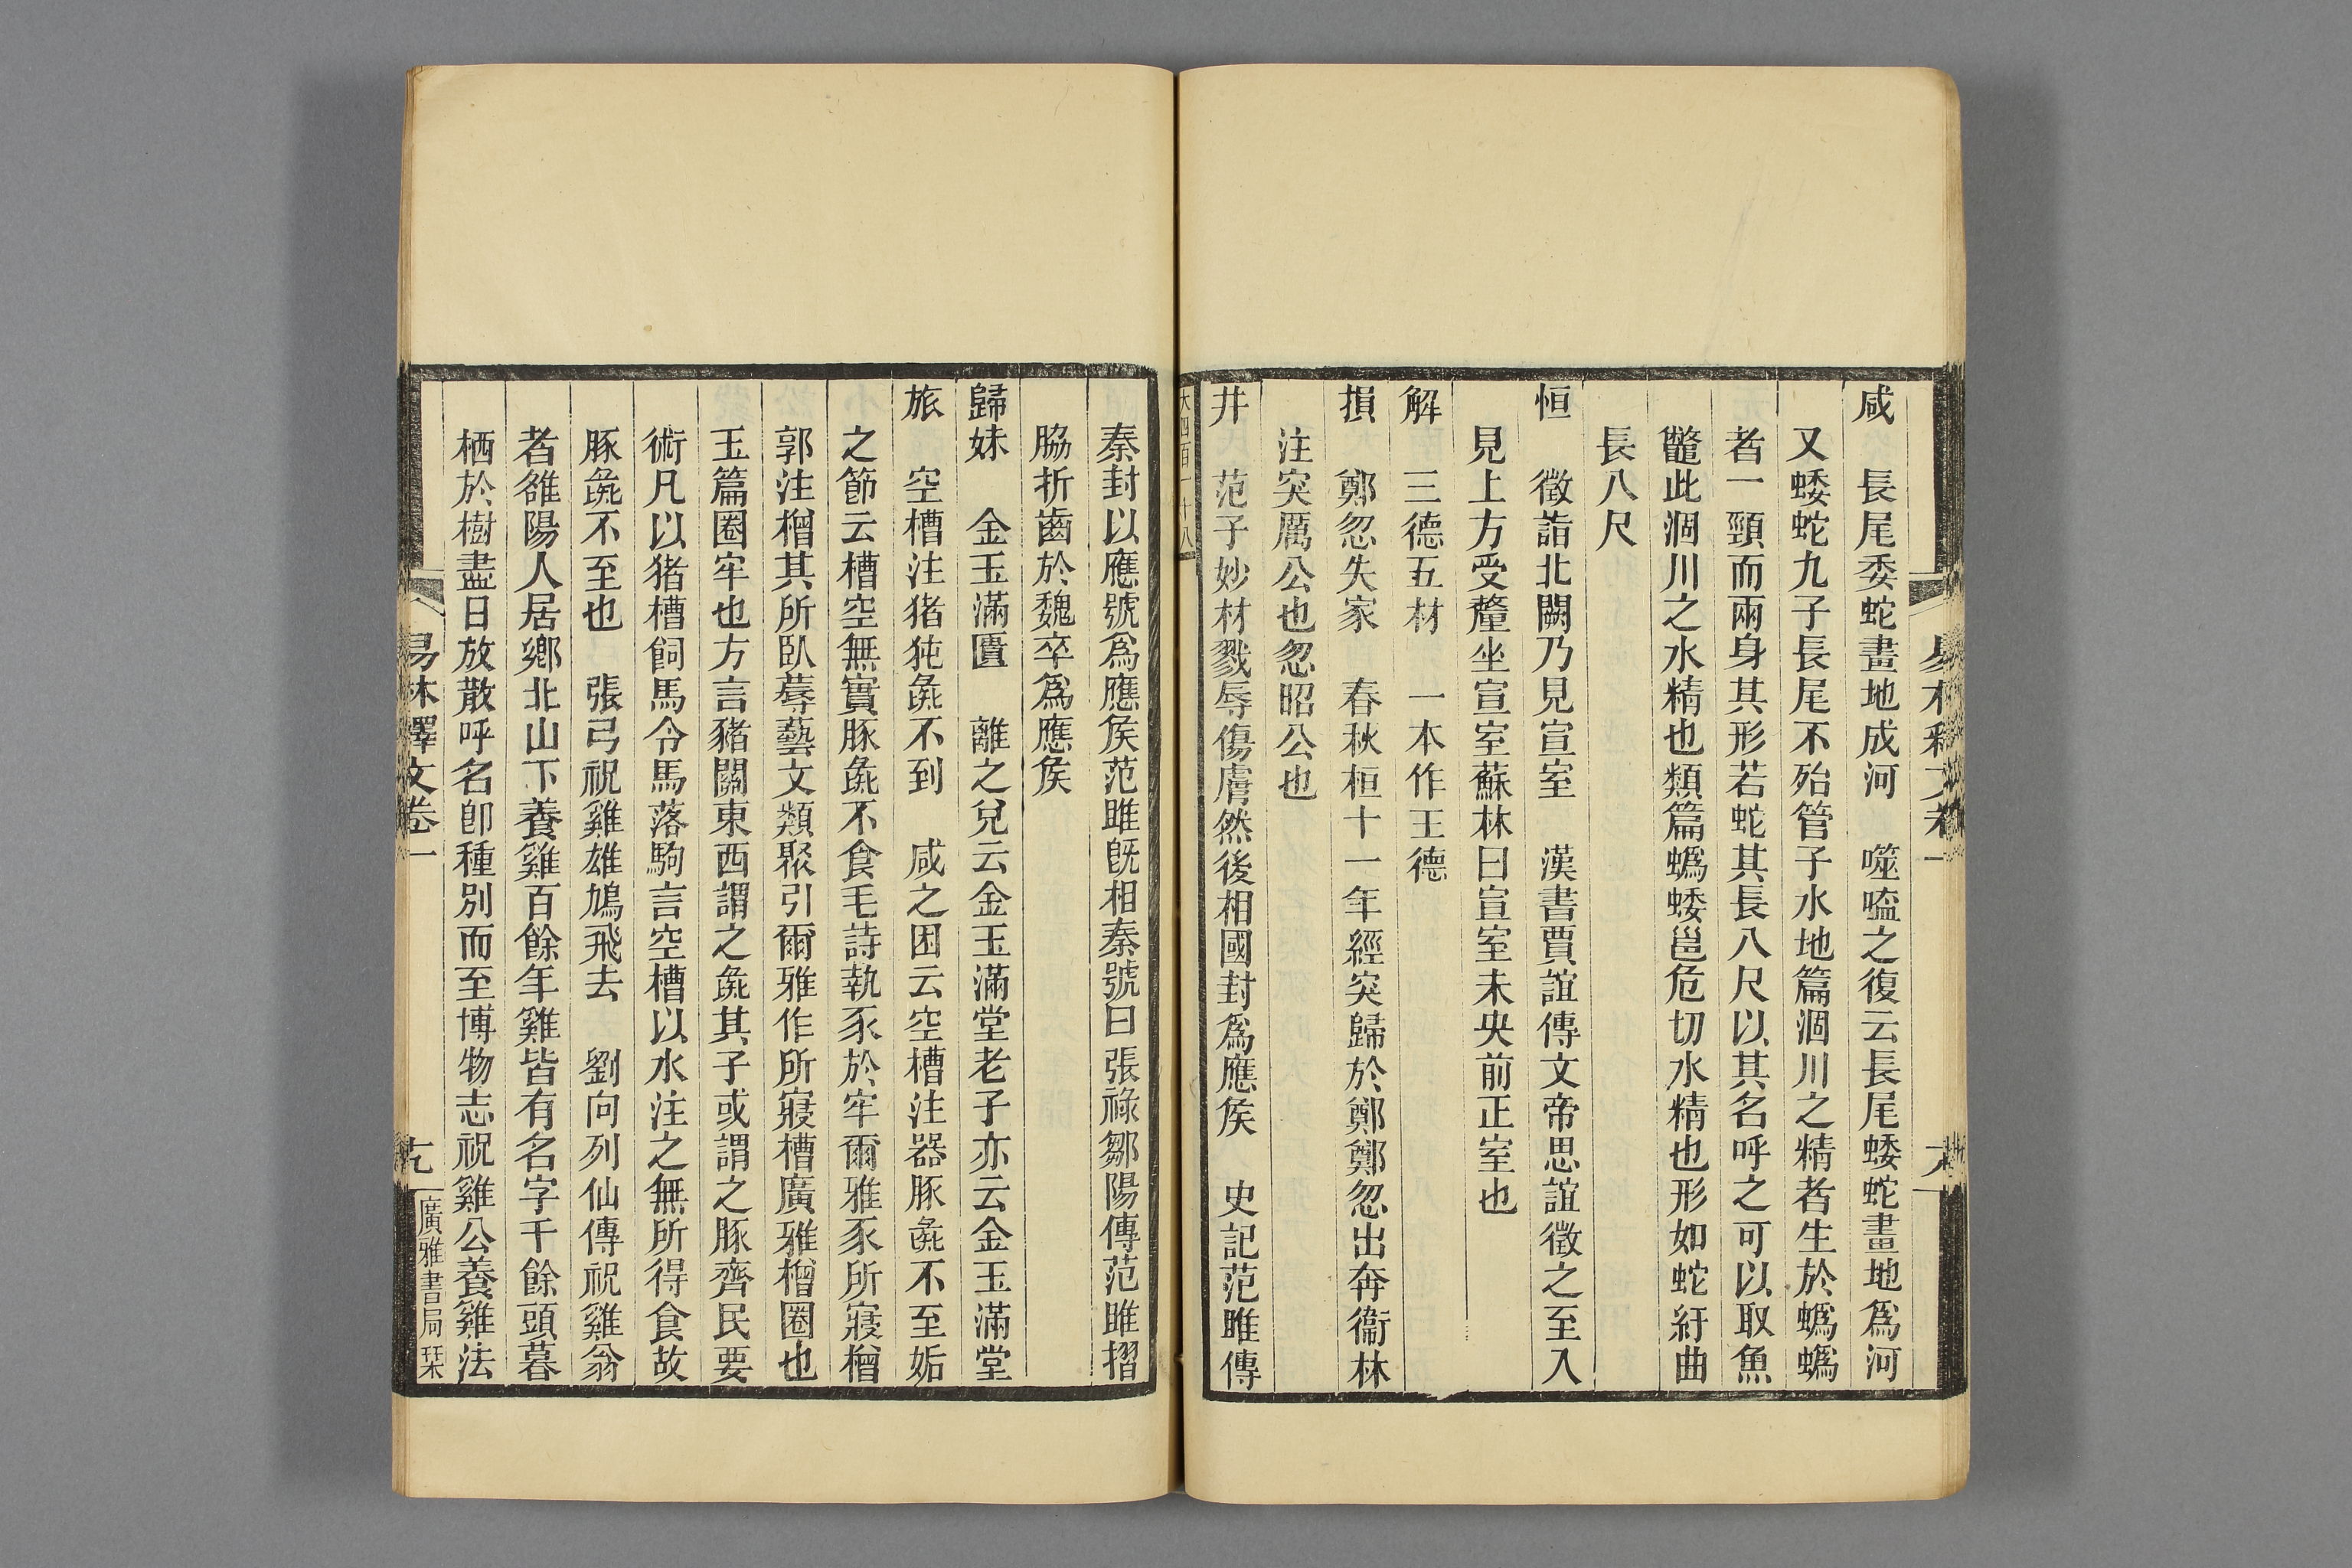 易林釋文卷一
咸　長尾委蛇畫地成河　噬嗑之復云長尾蜲蛇畫地爲河
又蜲蛇九子長尾不殆管子水地篇涸川之精者生於蟡蟡
者一頸而兩身其形若蛇其長八尺以其名呼之可以取魚
鼈此涸川之水精也類篇蟡蜲邕危切水精也形如蛇紆曲
長八尺
恒　徵詣北闕乃見宣室　漢書賈誼傳文帝思誼徵之至入
見上方受釐坐宣室蘇林曰宣室未央前正室也
解　三德五材　一本作王德
損　鄭忽失家　春秋桓十一年經突歸於鄭鄭忽出奔衞林
注突厲公也忽昭公也
井　范子妙材戮辱傷膚然後相國封爲應矦　史記范雎傳
大四百一十八
秦封以應號爲應矦范雎旣相秦號曰張祿鄒陽傳范雎摺
脇折齒於魏卒爲應矦
歸妹　金玉滿匱　離之兌云金玉滿堂老子亦云金玉滿堂
旅　空槽注猪㹠彘不到　咸之困云空槽注器豚彘不至姤
之節云槽空無實豚彘不食毛詩執豕於牢爾雅豕所寢橧
郭注橧其所臥蓐藝文類聚引爾雅作所寢槽廣雅橧圈也
玉篇圈牢也方言豬關東西謂之彘其子或謂之豚齊民要
術凡以猪槽飼馬令馬落駒言空槽以水注之無所得食故
豚彘不至也　張弓祝雞雄鳩飛去　劉向列仙傳祝雞翁
者雒陽人居鄉北山下養雞百餘年雞皆有名字千餘頭暮
栖於樹盡日放散呼名卽種別而至博物志祝雞公養雞法
易林釋文卷一
廣雅書局栞